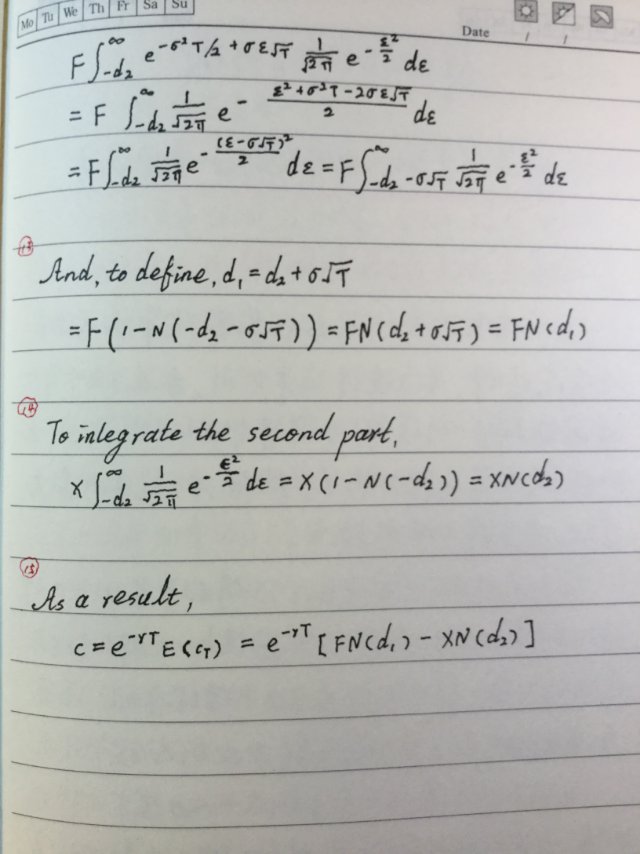 Mo Tu We Th Fr Sa Su
Date / /
F∫_{-d₂}^{∞} e^{-σ²T/2 + σε√T} 1/√2π e^{-ε²/2} dε
= F ∫_{-d₂}^{∞} 1/√2π e^{-(ε²+σ²T-2σε√T)/2} dε
= F∫_{-d₂}^{∞} 1/√2π e^{-(ε-σ√T)²/2} dε = F∫_{-d₂-σ√T}^{∞} 1/√2π e^{-ε²/2} dε
13
And, to define, d₁ = d₂ + σ√T
= F(1-N(-d₂-σ√T)) = FN(d₂+σ√T) = FN(d₁)
14
To integrate the second part,
X∫_{-d₂}^{∞} 1/√2π e^{-ε²/2} dε = X(1-N(-d₂)) = XN(d₂)
15
As a result,
c = e^{-rT} E(c_T) = e^{-rT} [FN(d₁) - XN(d₂)]